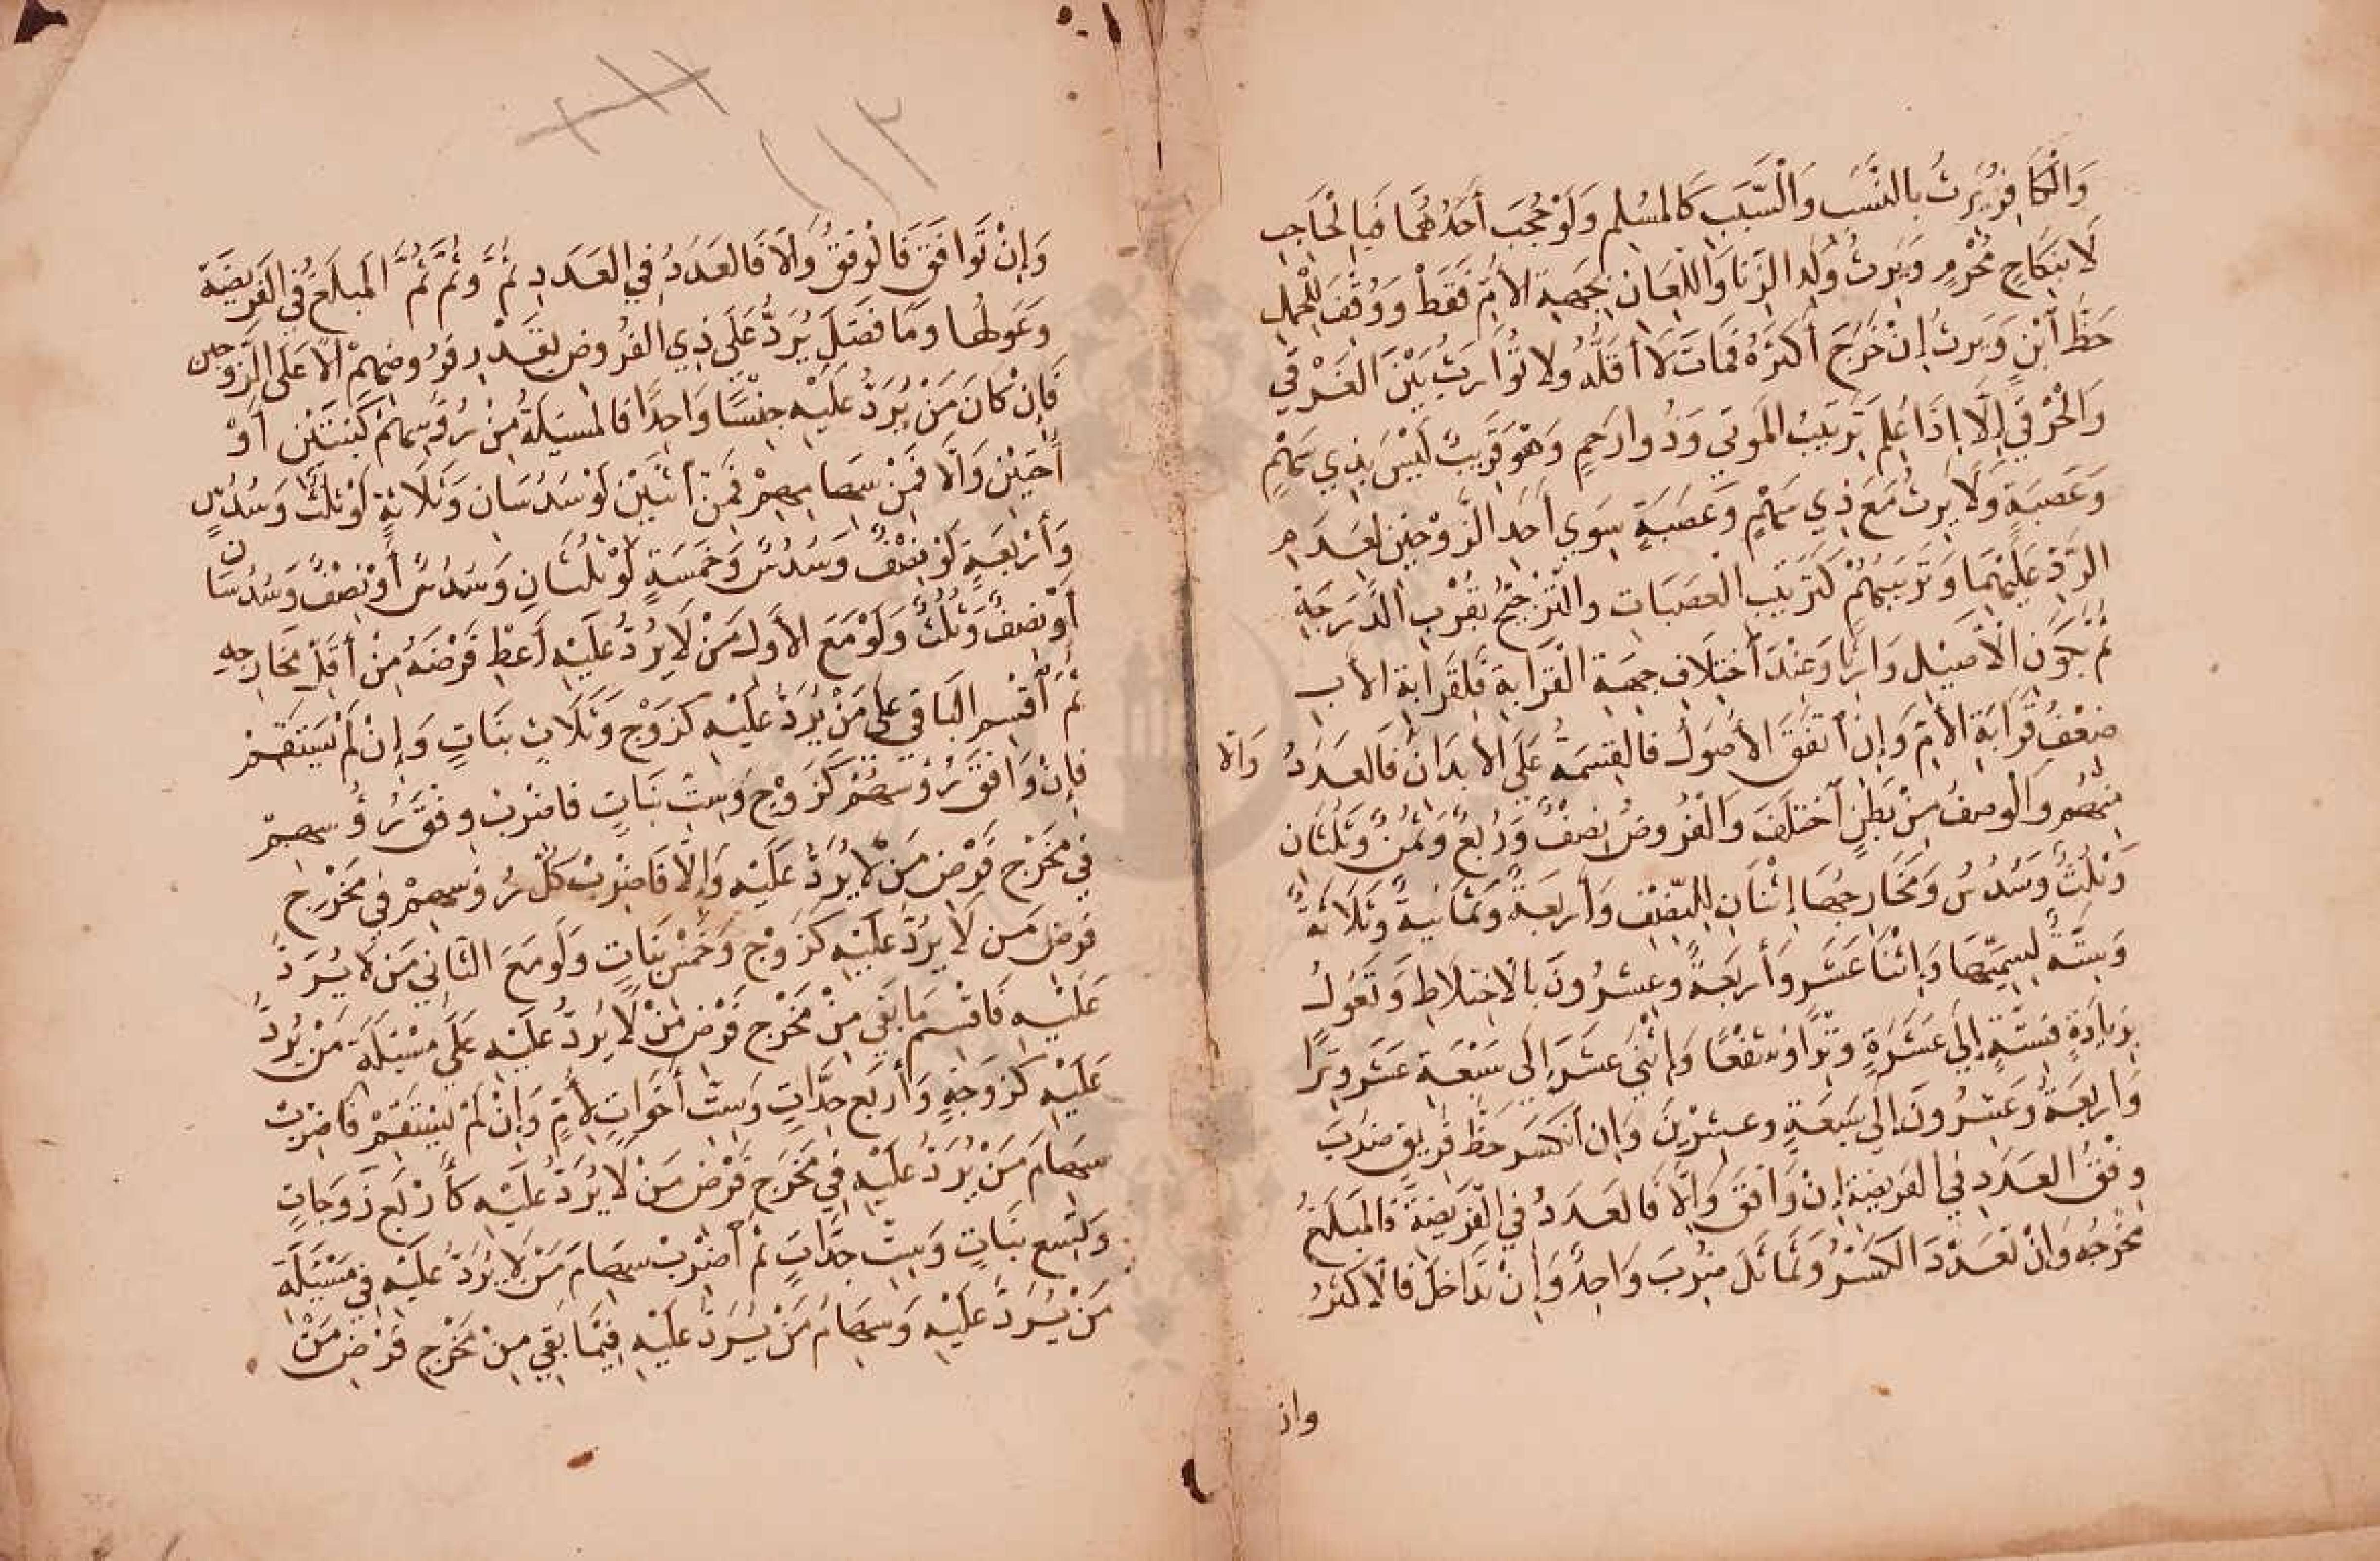 وَالْكَافِرُ يَرِثُ بِالنَّسَبِ وَالسَّبَبِ كَالمسْلِمِ وَلَوْ حُجِبَ أَحَدُهُمَا فَبِالْحَاجِبِ
لَا بِنِكَاحِ مُحْرَمٍ وَيَرِثُ وَلَدُ الزِّنَا وَاللِّعَانِ بِجِهَةِ الأُمِّ فَقَطْ وَوُقِفَ لِلْحَمْلِ
حَظُّ ابْنٍ وَيَرِثُ إِنْ خَرَجَ أَكْثَرُهُ فَمَاتَ لَا أَقَلُّهُ وَلَا تَوَارُثَ بَيْنَ الْغَرْقَى
وَالْحَرْقَى إِلَّا إِذَا عُلِمَ تَرْتِيبُ الْمَوْتَى وَذُوا رَحِمٍ وَهُوَ قَرِيبٌ لَيْسَ بِذِي سَهْمٍ
وَعَصَبَةٍ وَلَا يَرِثُ مَعَ ذِي سَهْمٍ وَعَصَبَةٍ سِوَى أَحَدِ الزَّوْجَيْنِ لِعَدَمِ
الرَّدِّ عَلَيْهِمَا وَتَرْتِيبُهُمْ كَتَرْتِيبِ الْعَصَبَاتِ وَالتَّرْجِيحُ بِقُرْبِ الدَّرَجَةِ
ثُمَّ بِكَوْنِ الْأَصِيلِ وَارِثًا وَعِنْدَ اخْتِلَافِ جِهَةِ الْقَرَابَةِ فَلِقَرَابَةِ الأَبِ
ضِعْفُ قَرَابَةِ الأُمِّ وَإِنْ اتَّفَقَ الأُصُولُ فَالْقِسْمَةُ عَلَى الأَبْدَانِ فَالعَدَدُ وَالا
مِنْهُمْ وَالْوَصْفُ مِنْ بَطْنٍ اخْتَلَفَ وَالْفُرُوضُ نِصْفٌ وَرُبُعٌ وَثُمُنٌ وَثُلُثَانِ
وَثُلُثٌ وَسُدُسٌ وَمَخَارِجُهَا إِثْنَانِ لِلنِّصْفِ وَأَرْبَعَةٌ وَثَمَانِيَةٌ وَثَلَاثَةٌ
وَسِتَّةٌ لِسَمِيِّهَا وَإِثْنَا عَشَرَ وَأَرْبَعَةٌ وَعِشْرُونَ بِالْاخْتِلَاطِ وَتَعُولُ
بِزِيَادَةٍ فَسِتَّةٌ إِلَى عَشَرَةٍ وِتْرًا وَشَفْعًا وَاثْنَى عَشَرَ إِلَى سَبْعَةَ عَشَرَ وِتْرًا
وَارْبَعَةٌ وَعِشْرُونَ إِلَى سَبْعَةٍ وَعِشْرِينَ وَإِن انْكَسَرَ حَظُّ فَرِيقٍ ضُرِبَ
وَفْقُ الْعَدَدِ فِي الْفَرِيضَةِ إِنْ وَافَقَ وَإِلَّا فَالْعَدَدُ فِي الْفَرِيضَةِ فَالْمَبْلَغُ
مَخْرَجُهُ وَإِنْ تَعَدَّدَ الْكَسْرُ وَتَمَاثَلَ ضُرِبَ وَاحِدٌ وَإِنْ تَدَاخَلَ فَالْأَكْثَرُ
وان
١١٢
وَإِنْ تَوَافَقَ فَالْوَفْقُ وَالَا فَالعَدَدُ فِي العَدَدِ ثُمَّ وَثُمَّ ثُمَّ الْمَبْلَغُ فِي الفَرِيضَةِ
وَعَوْلِهَا وَمَا فَضَلَ يُرَدُّ عَلَى ذِي الفُرُوضِ بِقَدْرِ فُرُوضِهِمْ اَلَّا عَلَى الزَّوْجَيْنِ
فَإِنْ كَانَ مَنْ يُرَدُّ عَلَيْهِ جِنْسًا وَاحِدًا فَالمسْئَلَةُ مِنْ رُؤُسِهِمْ كَبِنْتَيْنِ أَوْ
أُخْتَيْنِ وَالَّا فَمِنْ سِهَامِهِمْ فَمِنْ اثْنَيْنِ لَوْ سُدُسَانِ وَثَلَاثَةٍ لَوْ ثُلُثٌ وَسُدُسٌ
وَأَرْبَعَةٍ لَوْ نِصْفٌ وَسُدُسٌ وَخَمْسَةٍ لَوْ ثُلُثَانِ وَسُدُسٌ أَوْ نِصْفٌ وَسُدُسَانِ
أَوْ نِصْفٌ وَثُلُثٌ وَلَوْ مَعَ الأَوَّلِ مَنْ لَا يُرَدُّ عَلَيْهِ أَعْطِ فَرْضَهُ مِنْ أَقَلِّ مَخَارِجِهِ
ثُمَّ اقْسِمِ الْبَاقِي عَلَى مَنْ يُرَدُّ عَلَيْهِ كَزَوْجٍ وَثَلَاثِ بَنَاتٍ وَإِنْ لَمْ يَسْتَقِمْ
فَإِنْ وَافَقَ رُؤُسَهُمْ كَزَوْجٍ وَسِتِّ بَنَاتٍ فَاضْرِبْ وَفْقَ رُؤُسِهِمْ
فِي مَخْرَجِ فَرْضِ مَنْ لَا يُرَدُّ عَلَيْهِ وَإِلَّا فَاضْرِبْ كُلَّ رُؤُسِهِمْ فِي مَخْرَجِ
فَرْضِ مَنْ لَا يُرَدُّ عَلَيْهِ كَزَوْجٍ وَخَمْسِ بَنَاتٍ وَلَو مَعَ الثَّانِي مَنْ لَا يُرَدُّ
عَلَيْهِ فَاقْسِمْ مَا بَقِيَ مِنْ مَخْرَجِ فَرْضِ مَنْ لَا يُرَدُّ عَلَيْهِ عَلَى مَسْئَلَةِ مَنْ يُرَدُّ
عَلَيْهِ كَزَوْجَةٍ وَأَرْبَعِ جَدَّاتٍ وَسِتِّ أَخَوَاتٍ لِأُمٍّ وَإِنْ لَمْ يَسْتَقِمْ فَاضْرِبْ
سِهَامَ مَنْ يُرَدُّ عَلَيْهِ فِي مَخْرَجِ فَرْضِ مَنْ لَا يُرَدُّ عَلَيْهِ كَأَرْبَعِ زَوْجَاتٍ
وَتِسْعِ بَنَاتٍ وَسِتِّ جَدَّاتٍ ثُمَّ اضْرِبْ سِهَامَ مَنْ لَا يُرَدُّ عَلَيْهِ فِي مَسْئَلَةِ
مَنْ يُرَدُّ عَلَيْهِ وَسِهَامَ مَنْ يُرَدُّ عَلَيْهِ فِيمَا بَقِيَ مِنْ مَخْرَجِ فَرْضِ مَنْ